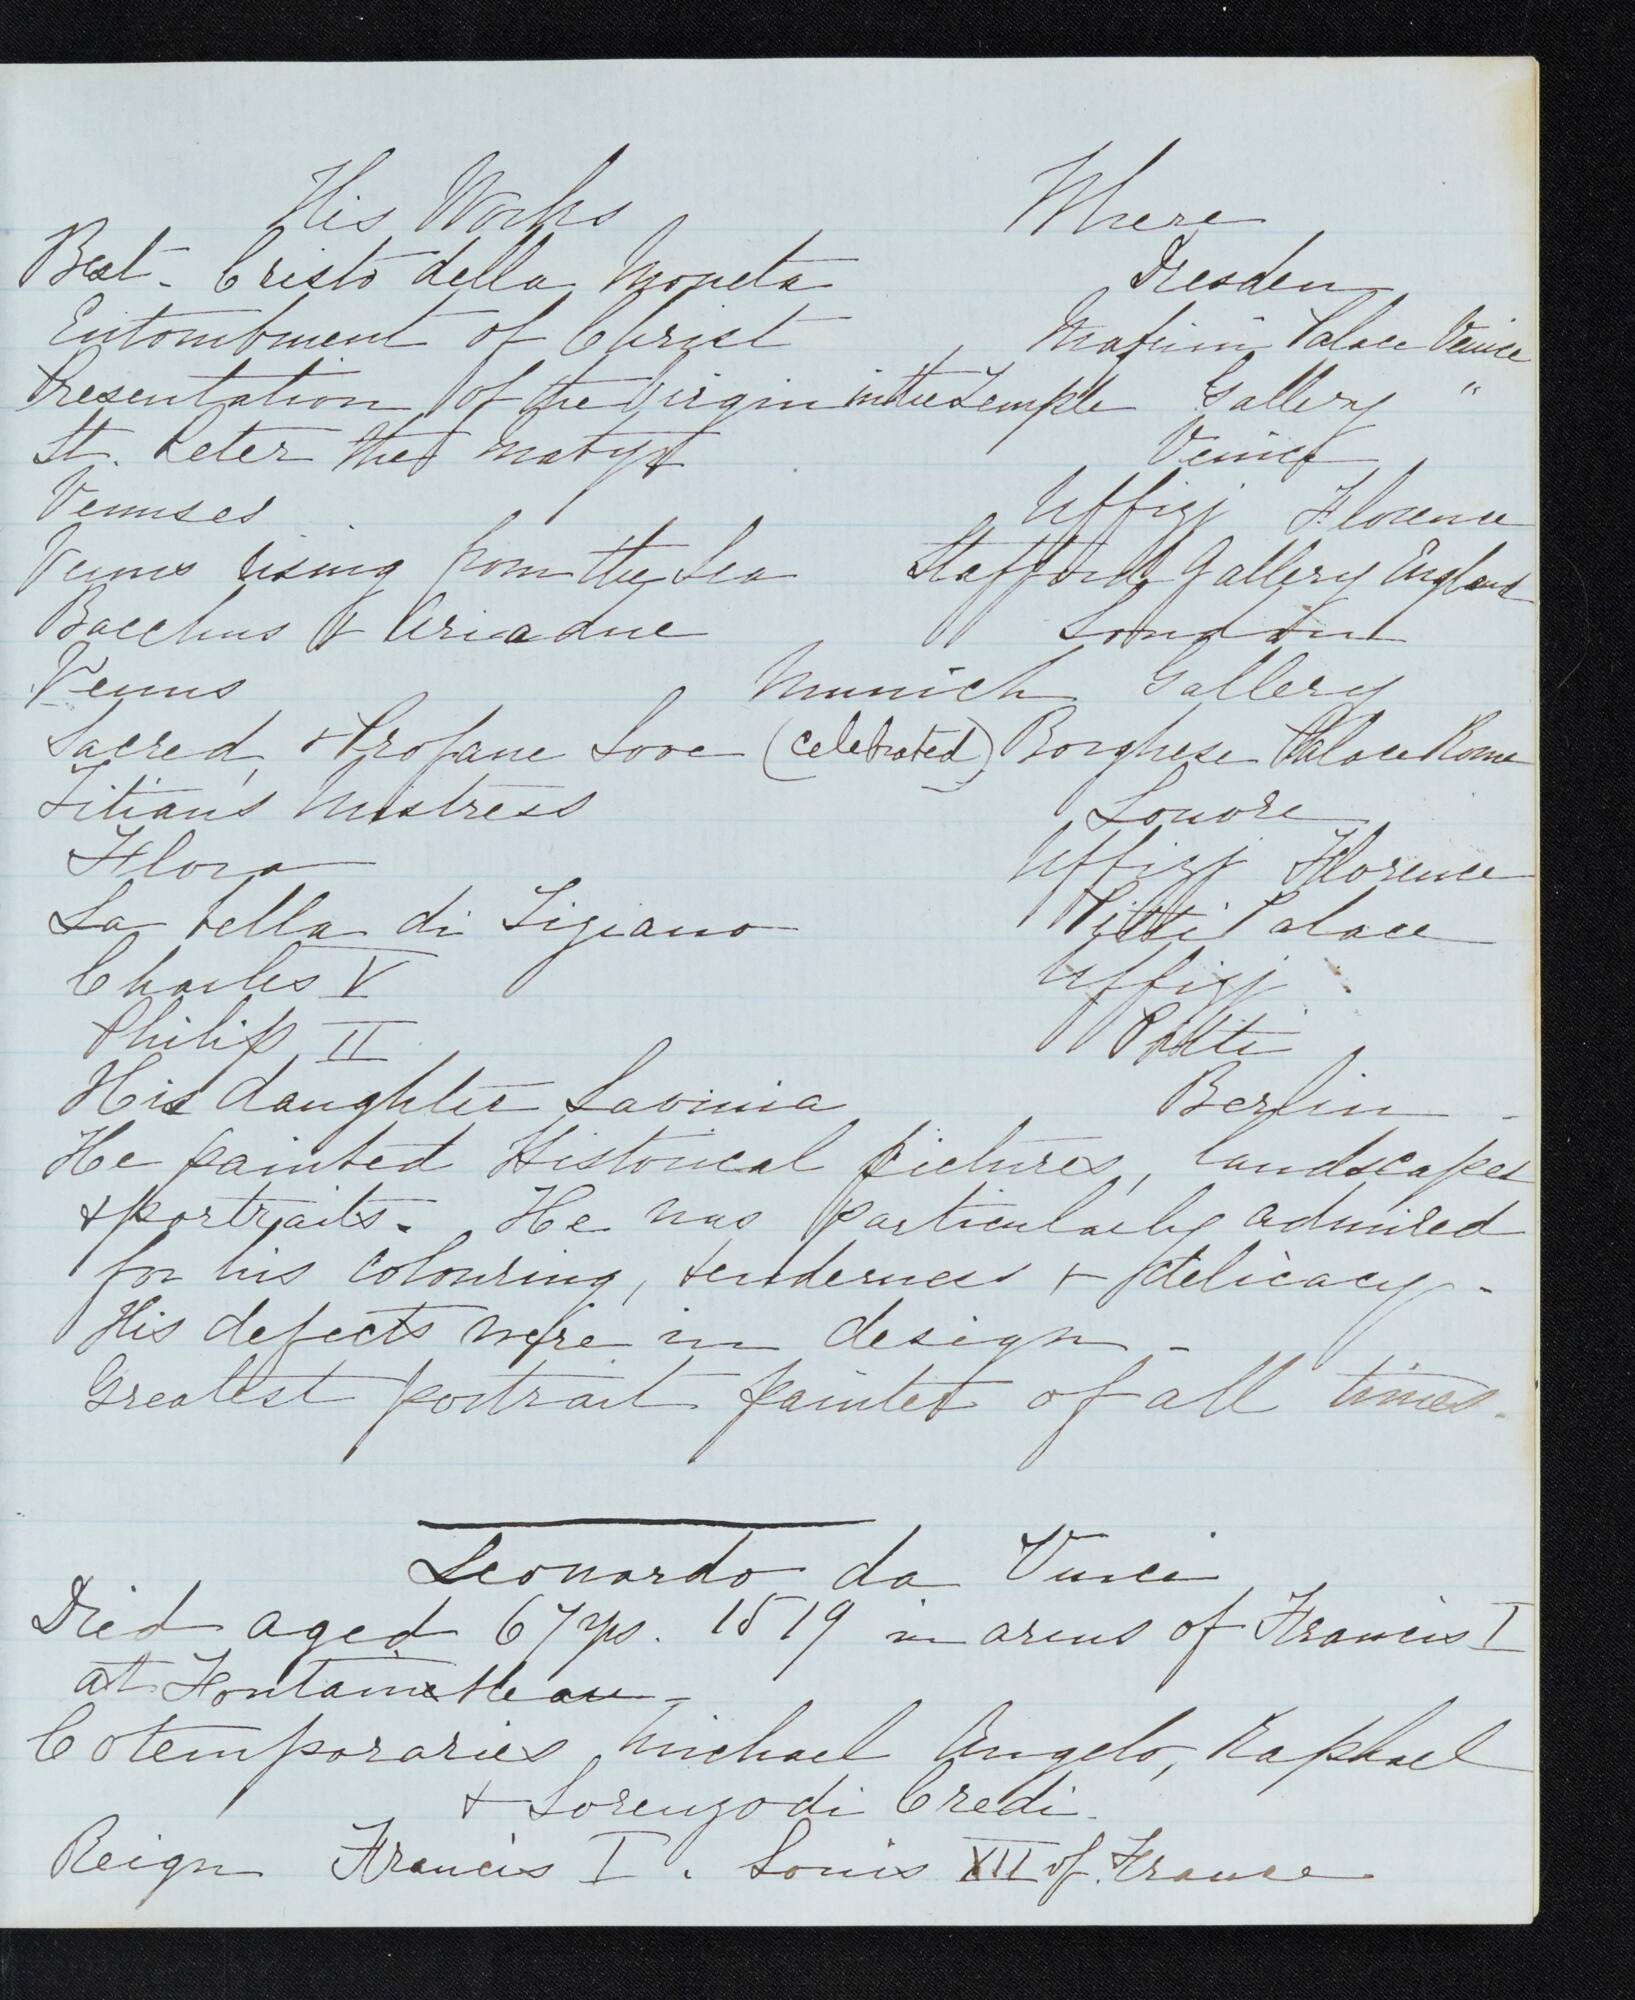 His Works Where
Best - Cristo della Moneta Dresden
Entombment of Christ Mafrini Palace Venice
Presentation of the Virgin in the Temple Gallery "
St. Peter the Matyr Venice
Venuses Uffizj Florence
Venus rising from the Sea Stafford Gallery England
Bacchus & Ariadne London
Venus Munich Gallery
Sacred & Profane Love (celebrated) Borghese Palace Rome
Titians Mistress Louvre
Flora Uffizj Florence
La bella di Tiziano Pitti Palace
Charles V Uffizj
Philip II Pitti
His daughter Lavinia Berlin -
He painted Historical pictures, landscapes
& portraits. He was particularly admired
for his colouring, tenderness & delicacy -
His defects were in design -
Greatest portrait painter of all times.
Leonardo da Vinci
Died aged 67 yrs. 1519 in arms of Francis I
at Fontainebleau -
Cotemporaries Michael Angelo, Raphael
& Lorenzo di Credi.
Reign Francis I. Louis XII of France